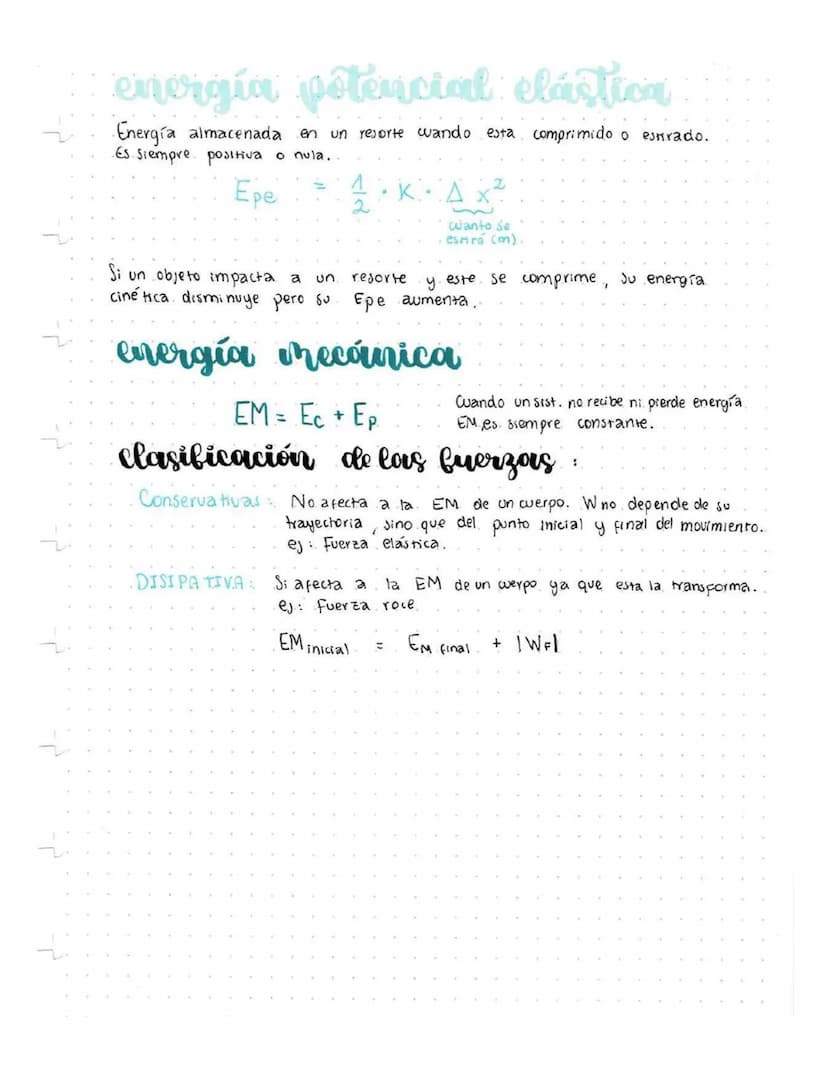 energía potencial elástica
Energía almacenada en un resorte cuando esta comprimido o estirado.
Es siempre positiva o nula.
Epe = 1/2 · K · Δx²
cuanto se
estiró (m)
Si un objeto impacta a un resorte y este se comprime, su energía
cinética disminuye pero su Epe aumenta.
energía mecánica
EM = Ec + Ep
Cuando un sist. no recibe ni pierde energía
EM es siempre constante.
clasificación de las fuerzas :
Conservativas : No afecta a la EM de un cuerpo. W no depende de su
trayectoria, sino que del punto inicial y final del movimiento.
ej : Fuerza elástica.
DISIPATIVA : Si afecta a la EM de un cuerpo ya que esta la transforma.
ej : Fuerza roce
EM inicial = EM final + |WF|